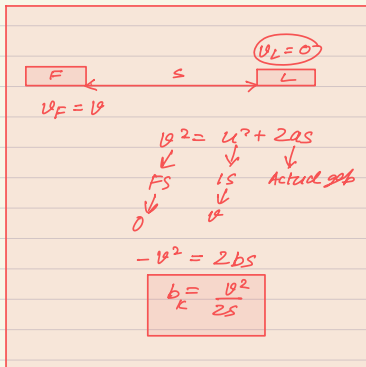 v_L = 0
F s L
v_F = v
v² = u² + 2as
FS IS Actual gap
0 v
- v² = 2bs
b_k = v²/2s